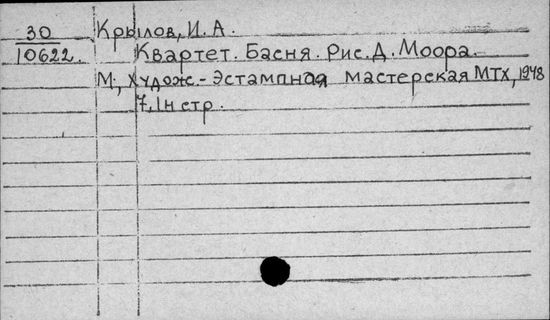 30 Крылов, И. А.
10622. Квартет. Басня. Рис. Д. Моора.
М., Худож.-Эстампная мастерская МТХ, 1948
7, 1н стр.